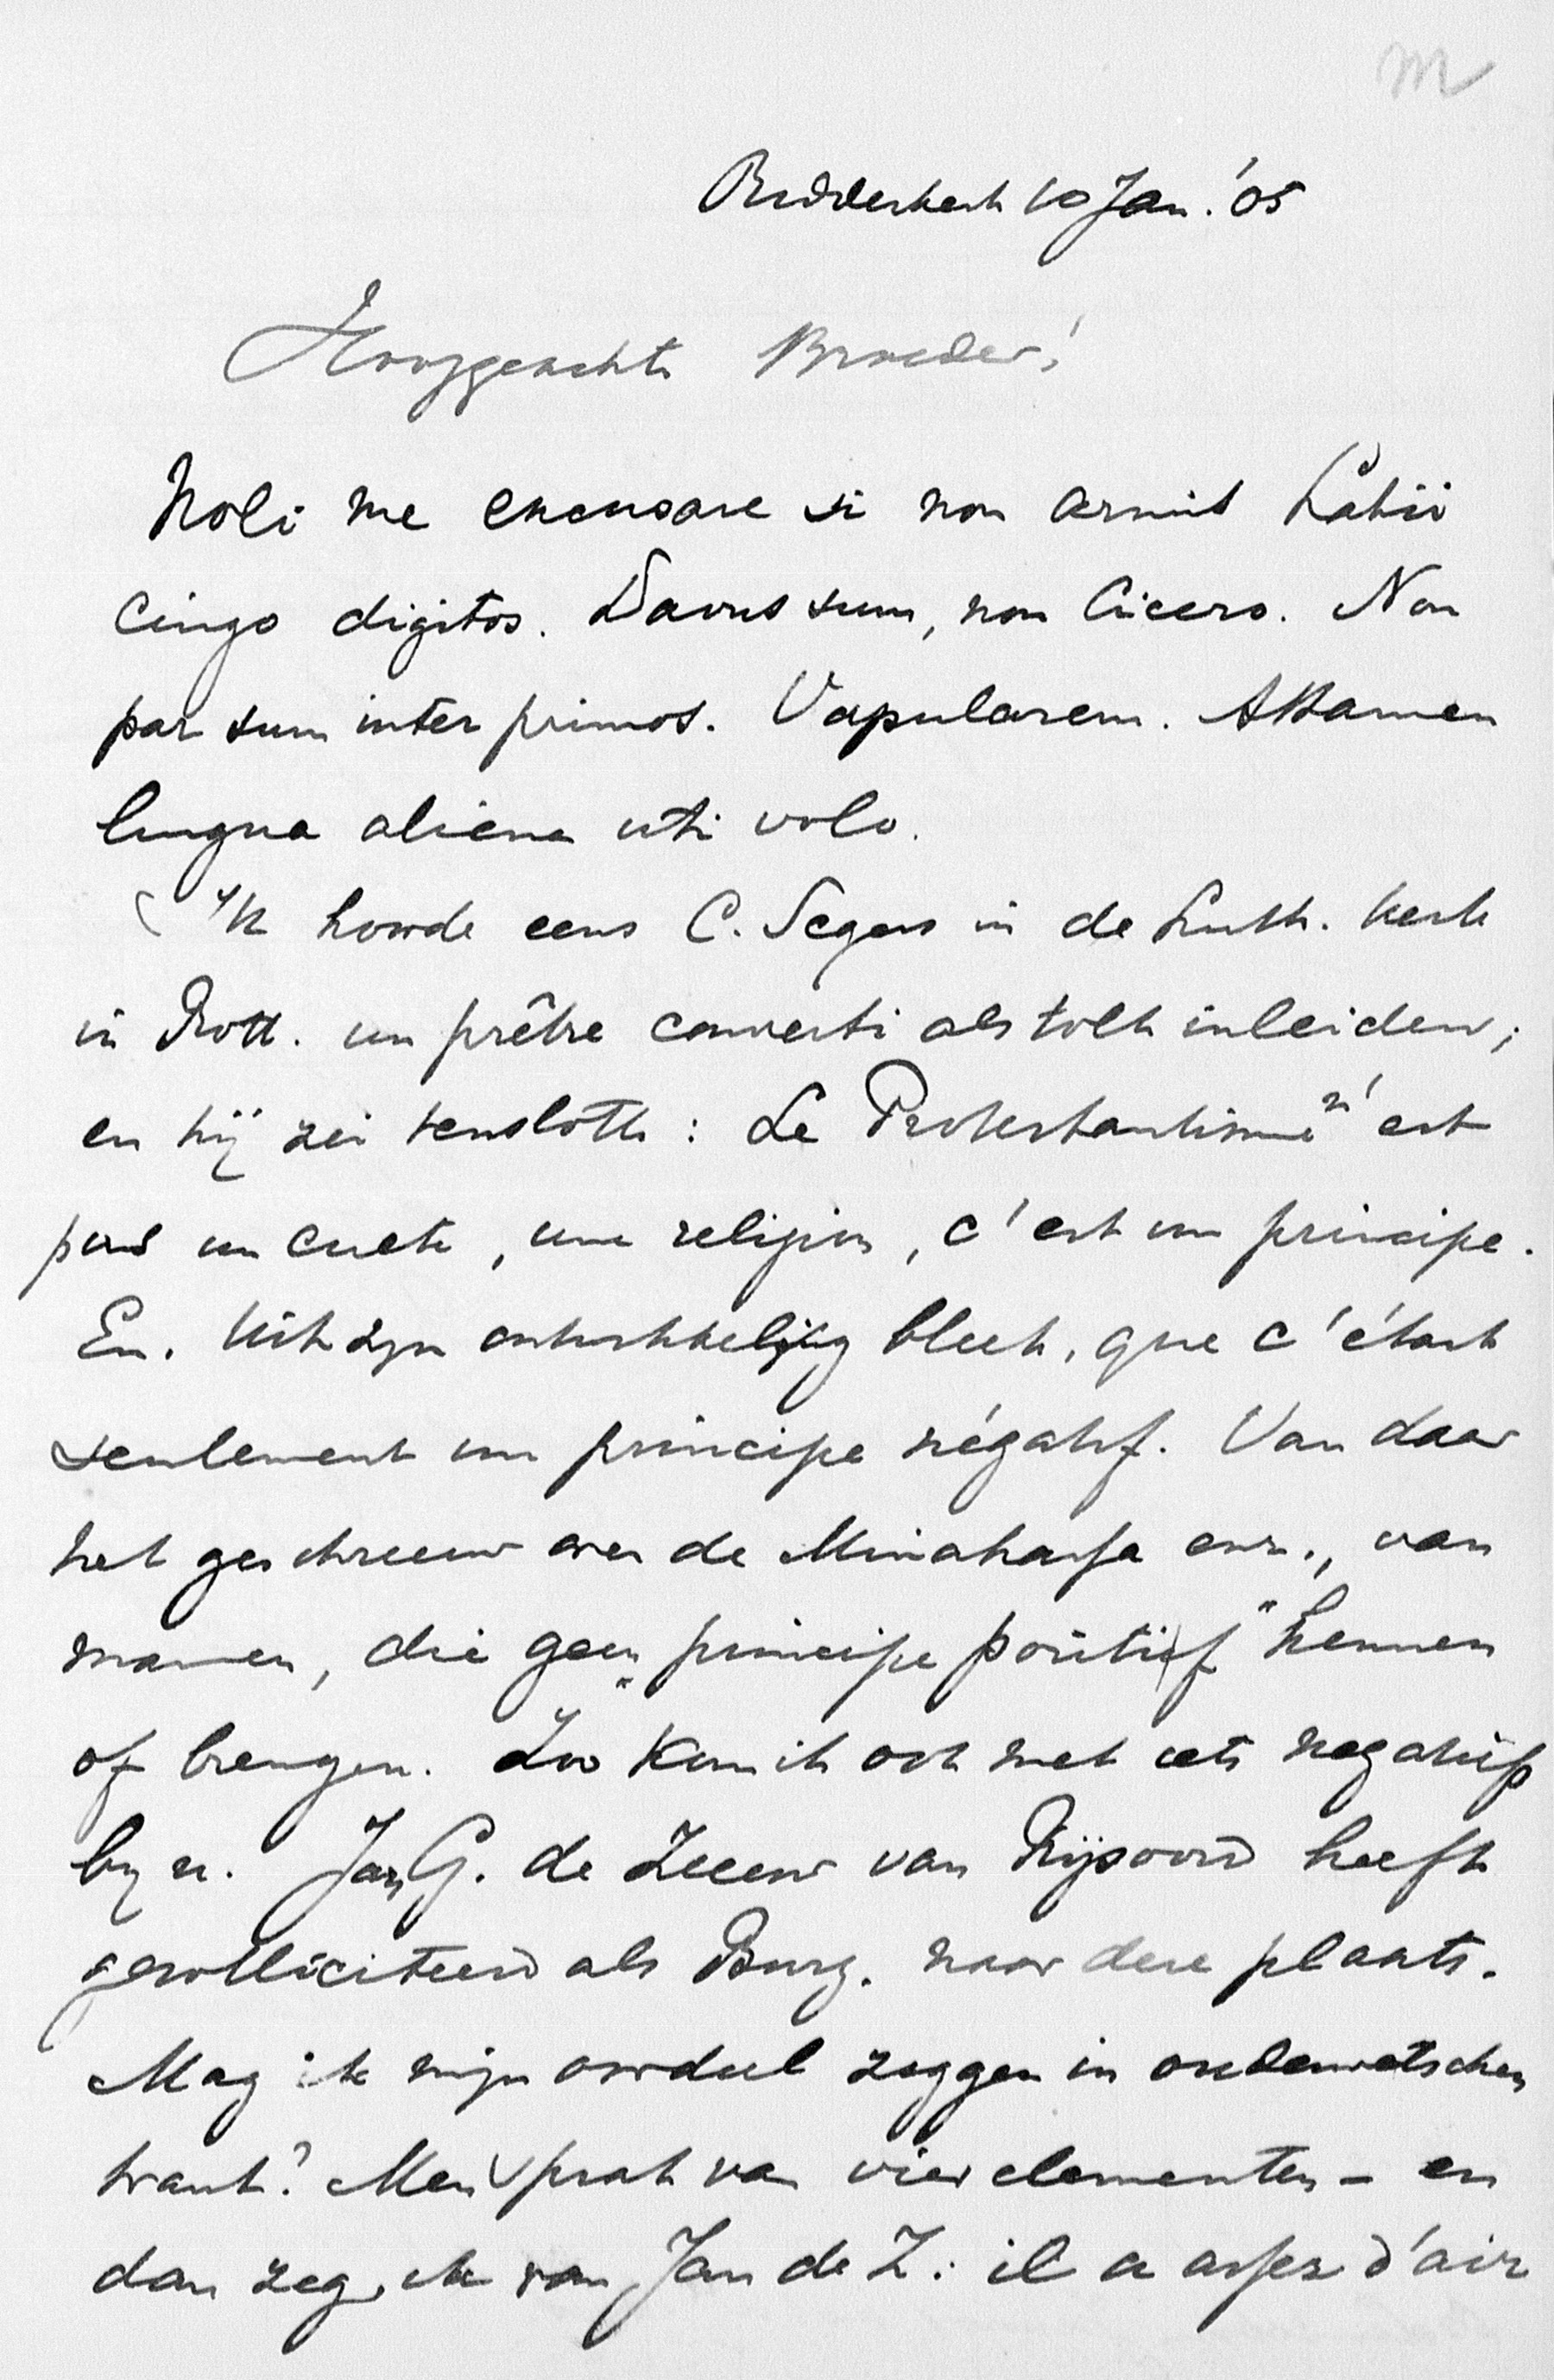 M
Ridderkerk 10 Jan. '05
Hooggeachte Broeder!
Noli me excusare si non armis Latii
cingo digitos. Davus sum, non Cicero. Non
par sum inter primos. Vapularem. Attamen
lingua aliena uti volo.
'k hoorde eens C. Segers in de Luth. kerk
in Rott. un prêtre converti als tolk inleiden;
en hij zei tenslotte: Le Protestantisme n'est
pas un culte, une religion, c'est un principe.
En. Uit zyn ontwikkeling bleek, que c'était
seulement un principe négatif. Van daar
het geschreeuw over de Minahassa enz., van
mannen, die geen „principe positif" kennen
of brengen. Zoo kom ik ook met iets negatiefs
by u. Jan G. de Zeeuw van Rijsoord heeft
gesolliciteerd als Burg. naar deze plaats.
Mag ik mijn oordeel zeggen in ouderwetschen
trant? Men sprak van vier elementen – en
dan zeg ik van Jan de Z: il a assez d'air